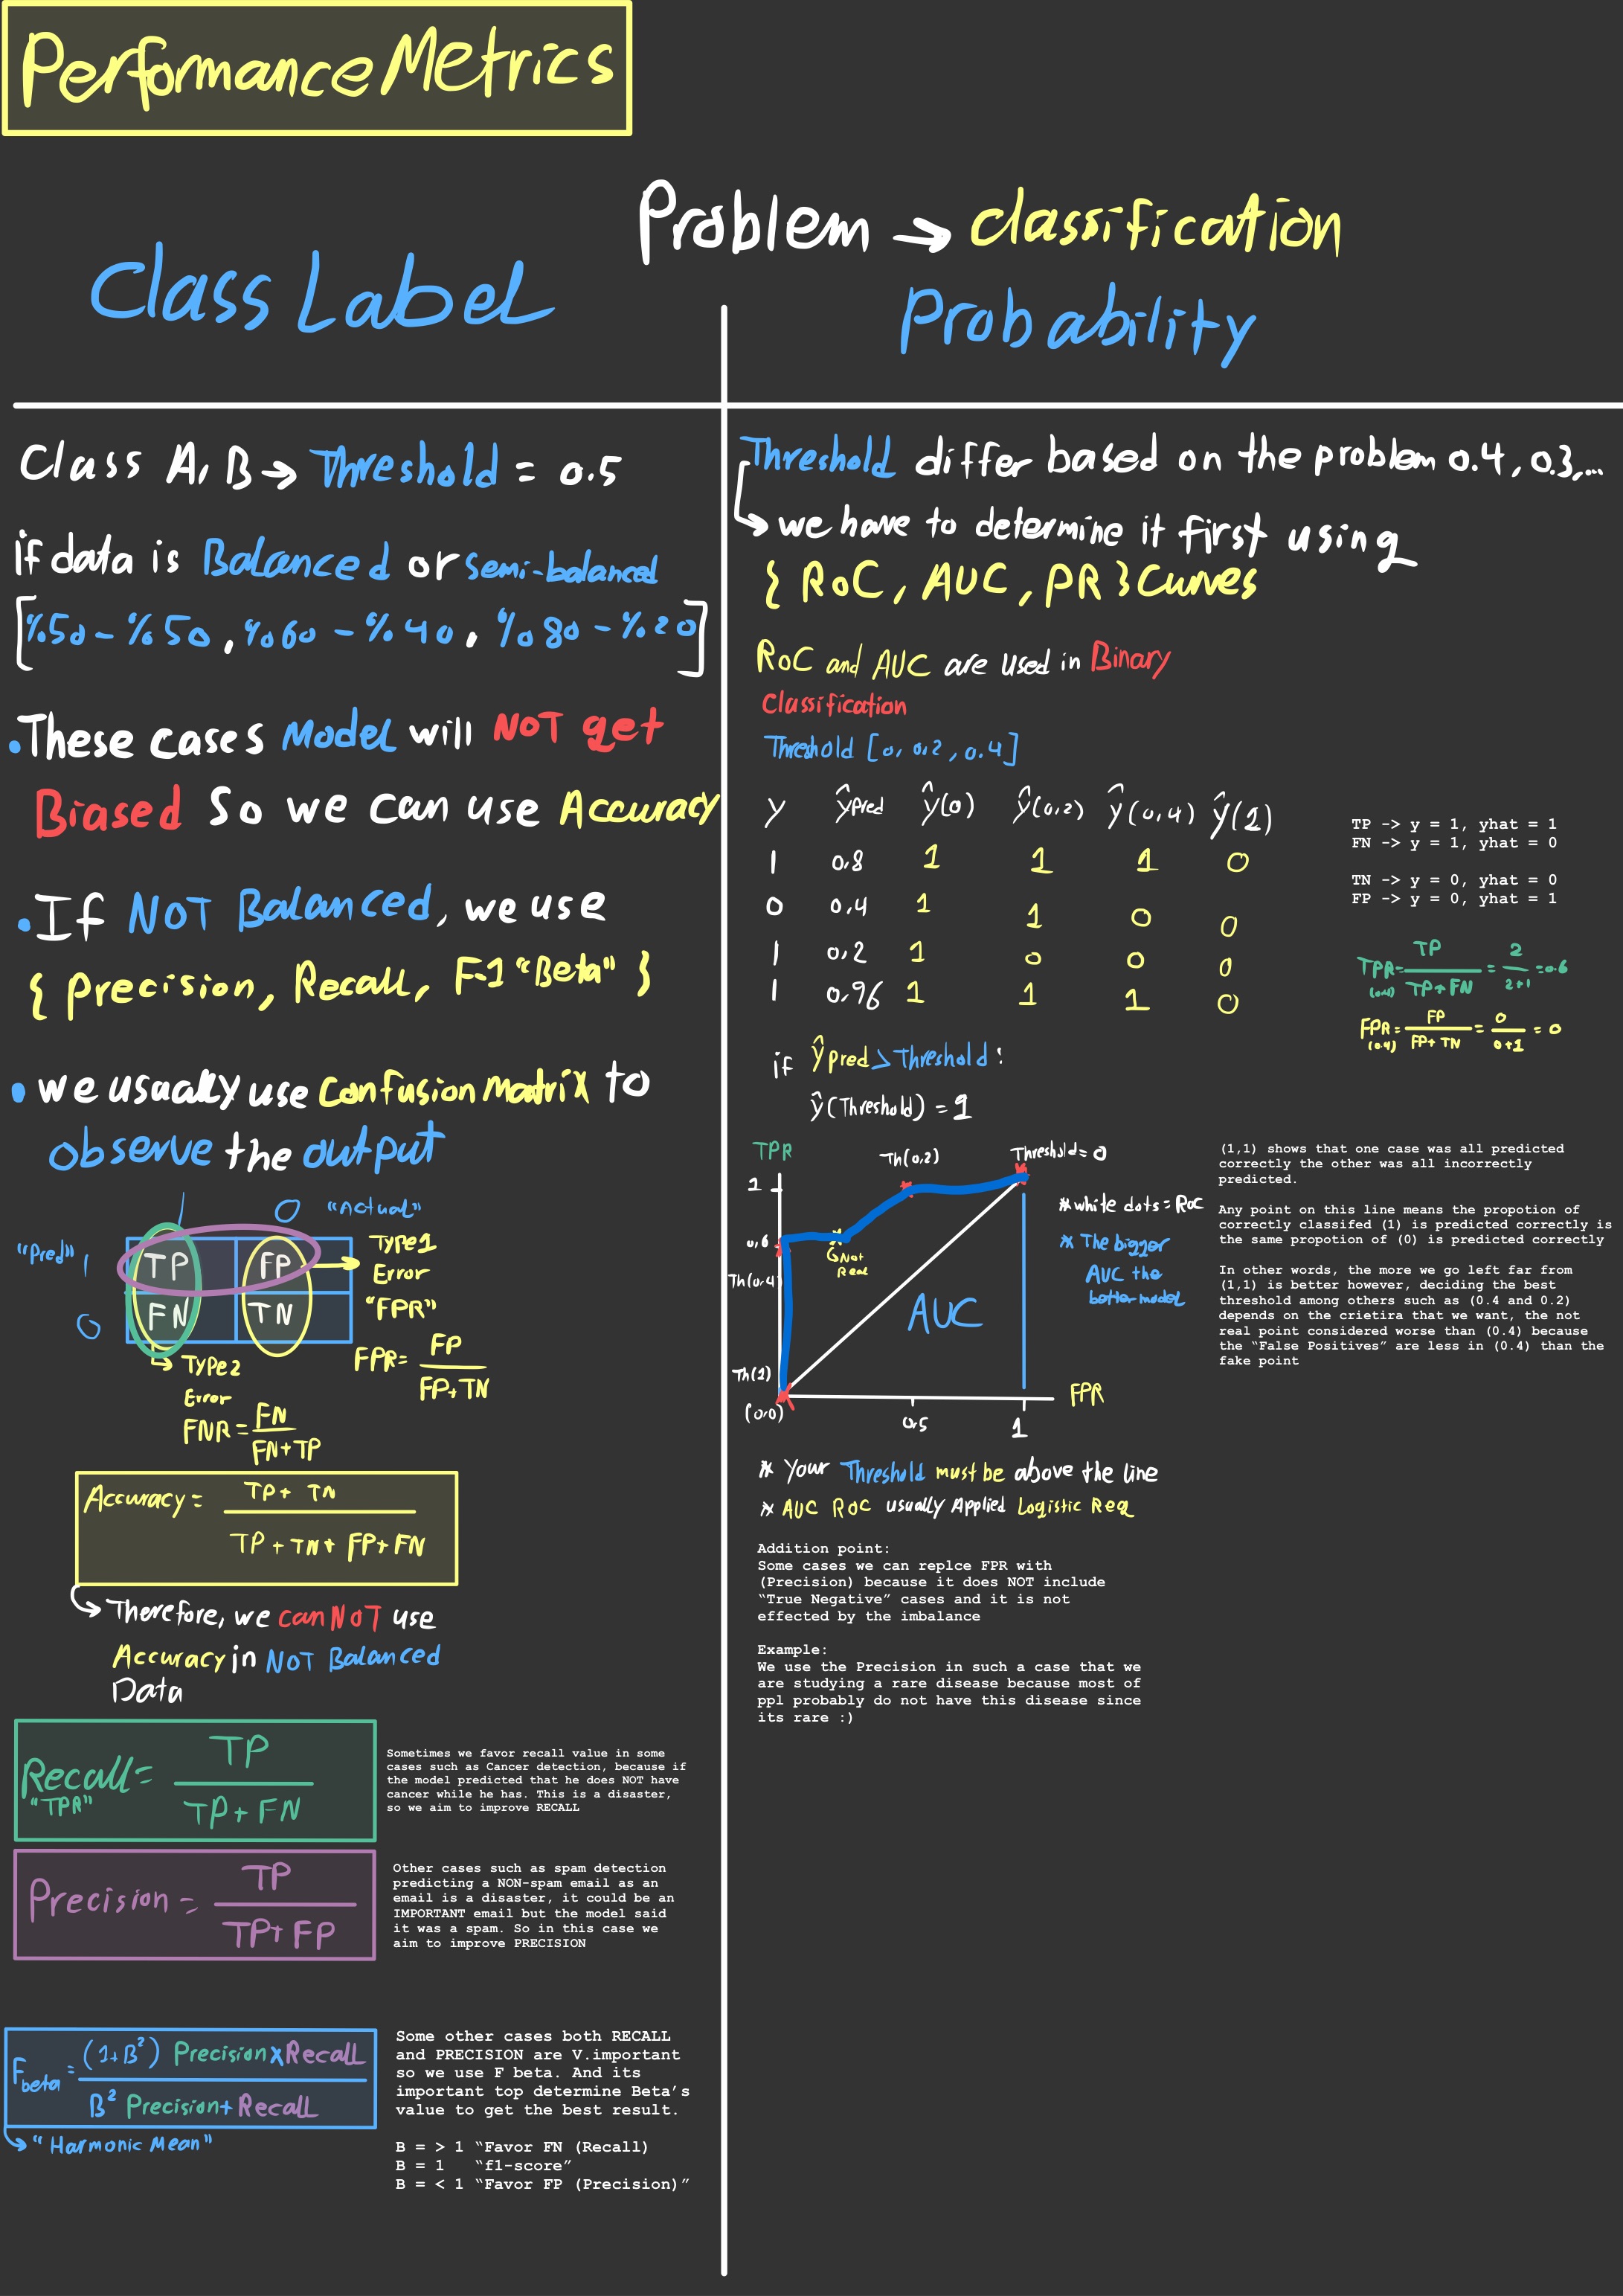 Performance Metrics
Problem → classification
Class Label
Probability
Class A, B → Threshold = 0.5
if data is Balanced or semi-balanced
[%50-%50, %60-%40, %80-%20]
• These cases Model will NOT get
Biased So we can use Accuracy
• If NOT Balanced, we use
{ Precision, Recall, F-1 "Beta" }
• we usually use Confusion Matrix to
observe the output
1 0 "Actual"
"Pred" 1 TP FP
0 FN TN
Type1
Error
"FPR"
FPR = FP / FP+TN
Type2
Error
FNR = FN / FN+TP
Accuracy = TP + TN / TP + TN + FP + FN
Therefore, we canNOT use
Accuracy in NOT Balanced
Data
Recall = TP / TP + FN
"TPR"
Sometimes we favor recall value in some
cases such as Cancer detection, because if
the model predicted that he does NOT have
cancer while he has. This is a disaster,
so we aim to improve RECALL
Precision = TP / TP+FP
Other cases such as spam detection
predicting a NON-spam email as an
email is a disaster, it could be an
IMPORTANT email but the model said
it was a spam. So in this case we
aim to improve PRECISION
Fbeta = (1+B²) Precision x Recall / B² Precision + Recall
"Harmonic Mean"
Some other cases both RECALL
and PRECISION are V.important
so we use F beta. And its
important top determine Beta's
value to get the best result.
B = > 1 "Favor FN (Recall)
B = 1 "f1-score"
B = < 1 "Favor FP (Precision)"
Threshold differ based on the problem 0.4, 0.3,...
we have to determine it first using
{ RoC, AUC, PR } Curves
RoC and AUC are used in Binary
Classification
Threshold [0, 0.2, 0.4]
y ŷPred ŷ(0) ŷ(0,2) ŷ(0,4) ŷ(1)
1 0,8 1 1 1 0
0 0,4 1 1 0 0
1 0,2 1 0 0 0
1 0,96 1 1 1 0
if ŷpred > Threshold :
ŷ(Threshold) = 1
TP -> y = 1, yhat = 1
FN -> y = 1, yhat = 0
TN -> y = 0, yhat = 0
FP -> y = 0, yhat = 1
TPR(0.4) = TP / TP + FN = 2 / 2+1 = 0.6
FPR(0.4) = FP / FP+ TN = 0 / 0+1 = 0
TPR
Th(0,2)
Threshold = 0
1
* white dots = RoC
0,6
Not
Real
* The bigger
AUC the
better model
Th(0.4)
AUC
Th(1)
(0,0)
0.5
1
FPR
(1,1) shows that one case was all predicted
correctly the other was all incorrectly
predicted.
Any point on this line means the propotion of
correctly classifed (1) is predicted correctly is
the same propotion of (0) is predicted correctly
In other words, the more we go left far from
(1,1) is better however, deciding the best
threshold among others such as (0.4 and 0.2)
depends on the crietira that we want, the not
real point considered worse than (0.4) because
the "False Positives" are less in (0.4) than the
fake point
* Your Threshold must be above the line
* AUC RoC usually Applied Logistic Reg
Addition point:
Some cases we can replce FPR with
(Precision) because it does NOT include
"True Negative" cases and it is not
effected by the imbalance
Example:
We use the Precision in such a case that we
are studying a rare disease because most of
ppl probably do not have this disease since
its rare :)